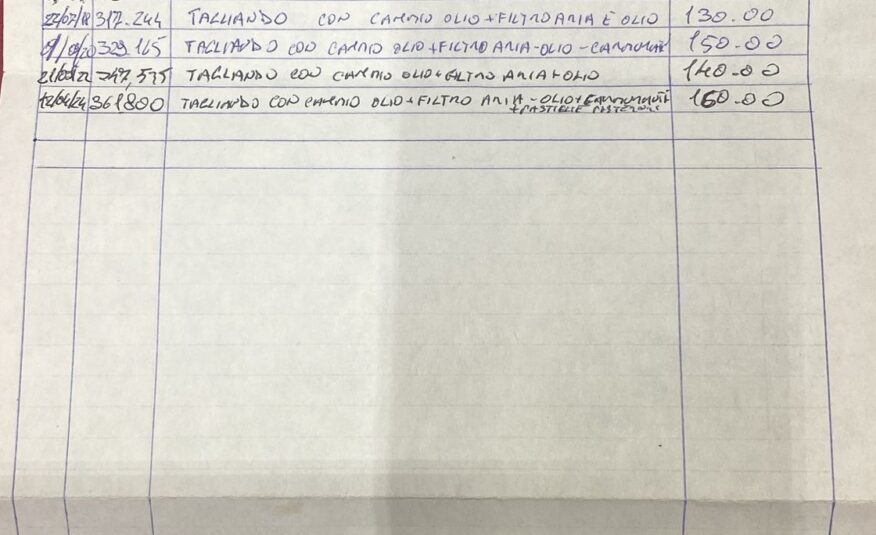 22/07/18 317.244 TAGLIANDO CON CAMBIO OLIO+FILTRO ARIA E OLIO 130.00
329.165 TAGLIANDO CON CAMBIO OLIO+FILTRO ARIA-OLIO- 150.00
347,515 TAGLIANDO CON CAMBIO OLIO+FILTRO ARIA+OLIO 140.00
12/04/24 361,800 TAGLIANDO CON CAMBIO OLIO+FILTRO ARIA-OLIO+ 160.00
+PASTIGLIE POSTERIORI